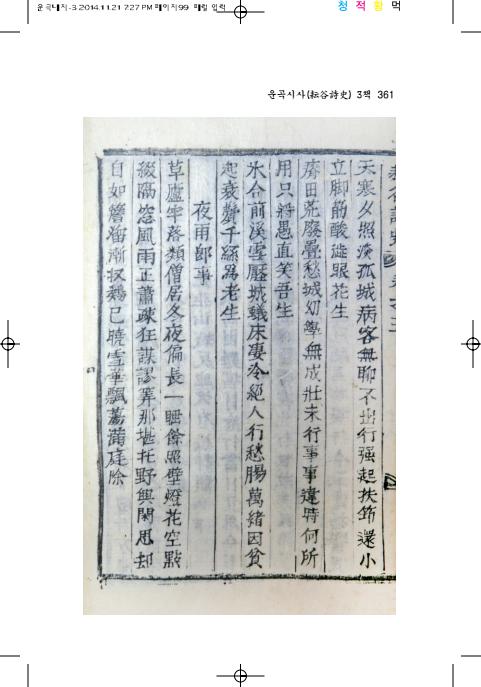 운곡시사-3-2014.11.21 7:27 PM 페이지99
청 적 황 먹
운곡시사(耘谷詩史) 3책 361
天寒夕照淡孤城病客無聊不出行强起扶笻還小
立脚筋酸澁眼花生
廢田荒廢疊愁城幼學無成壯未行事事違時何所
用只將愚直笑吾生
氷合前溪雪壓城蟻床凄冷絕人行愁腸萬緖因貧
起衰鬢千絲爲老生
夜雨卽事
草廬牢落類僧居冬夜偏長一睡餘照壁燈花空點
綴隔窓風雨正蕭疎狂謀謬筭那堪托野興閑思却
自如簷溜漸收鷄已曉雪華飄蕩滿庭除